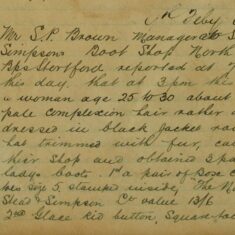 Feby
Mr S.P. Brown Manager to S
Simpsons Boot Shop. North
Bps Stortford reported at 7
this day. that at 3 pm this
a woman age 25 to 30 about
pale complexion hair rather
dressed in black Jacket
hat trimmed with fur, ca
their shop and obtained 3 pa
ladys boots. 1st a pair of Box C
size 5, stamped inside, The N
Stead & Simpson Co value 13/6
2nd Glace kid button, Square toe